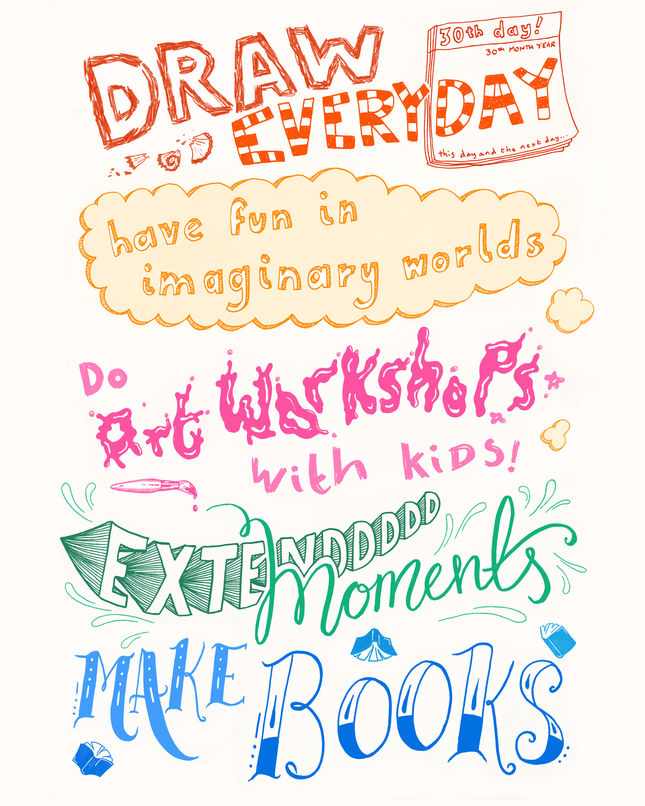 DRAW
30th day!
30th MONTH YEAR
EVERYDAY
this day and the next day...
have fun in
imaginary worlds
Do
art workshops
with kiDs!
EXTENDDDDD
Moments
MAKE
BOOKS